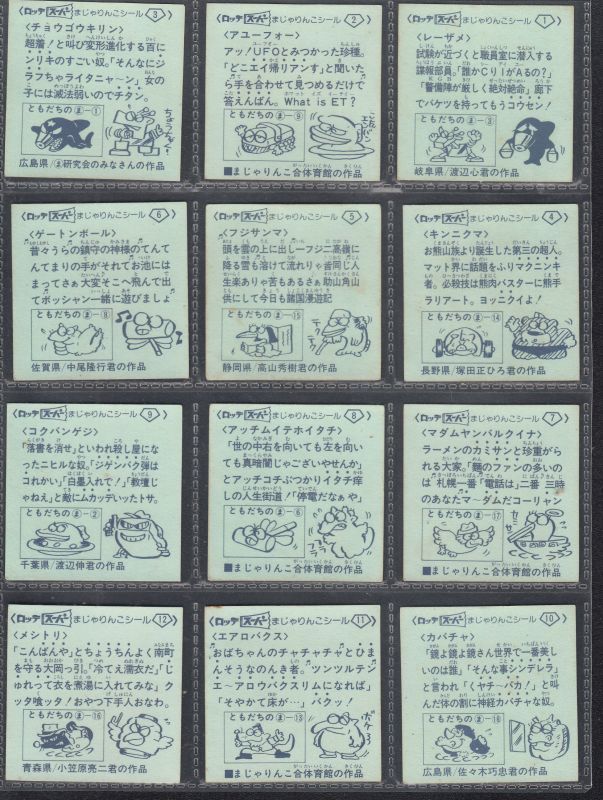 ロッテ スーパー まじゃりんこシール〈3〉
〈チョウゴウキリン〉
超着!と叫び変形進化する百に
ンリキのすごい奴。「そんなにジ
ラフちゃライタニャ〜ン」女の
子には滅法弱いのでチタン。
ともだちの ま-①
広島県/ま研究会のみなさんの作品
ロッテ スーパー まじゃりんこシール〈2〉
〈アユーフォー〉
アッ!UFOとみつかった珍種。
「どこエイ帰リアンす」と聞いた
ら手を合わせて見つめるだけで
答えんばん。What is ET?
ともだちの ま-⑨
■まじゃりんこ合体育館の作品
ロッテ スーパー まじゃりんこシール〈1〉
〈レーザメ〉
試験が近づくと職員室に潜入する
諜報部員。「誰かCIIがAるの?」
「警備陣が厳しく絶対絶命」廊下
でバケツを持ってもうコウセン!
ともだちの ま-③
岐阜県/渡辺心君の作品
ロッテ スーパー まじゃりんこシール〈6〉
〈ゲートンボール〉
昔々うらの鎮守の神様のてんて
んてまりの手がそれてお池には
まってさぁ大変そこへ飛んで出
てボッシャン一緒に遊びましょ
ともだちの ま-⑧
佐賀県/中尾隆行君の作品
ロッテ スーパー まじゃりんこシール〈5〉
〈フジサンマ〉
頭を雲の上に出しーフジ二高嶺に
降る雪も溶けて流れりゃ皆同じ人
生楽ありゃ苦もあるさぁ助山角山
供にして今日も諸国漫遊記
ともだちの ま-⑮
静岡県/高山秀樹君の作品
ロッテ スーパー まじゃりんこシール〈4〉
〈キンニクマ〉
お熊山族より誕生した第三の超人。
マット界に話題をふりマクニンキ
者。必殺技は熊肉バスターに熊手
ラリアート。ヨッニクイよ!
ともだちの ま-⑭
長野県/塚田正ひろ君の作品
ロッテ スーパー まじゃりんこシール〈9〉
〈コクバンゲジ〉
「落書を消せ」といわれ殺し屋に
なったニヒルな奴。「ジゲンバク弾は
コれかい」「白墨入れで!」「教壇じ
ゃねえ」と敵にムカッデいったトサ。
ともだちの ま-②
千葉県/渡辺伸君の作品
ロッテ スーパー まじゃりんこシール〈8〉
〈アッチムイテホイタチ〉
「世の中右を向いても左を向い
ても真暗闇じゃございやせんか」
とアッチコチぶつかりイタチ痒
しの人生街道!「停電だなぁや」
ともだちの ま-⑥
フラ フラ
■まじゃりんこ合体育館の作品
ロッテ スーパー まじゃりんこシール〈7〉
〈マダムヤンバルクイナ〉
ラーメンのカミサンと珍重がら
れる大家。「麺のファンの多いの
は 札幌一番「電話は」二番 三時
のあなたマ−ダムだコーリャン
ともだちの ま-⑰
■まじゃりんこ合体育館の作品
ロッテ スーパー まじゃりんこシール〈12〉
〈メシトリ〉
「こんばんや」とちょうちんよく南町
を守る大岡っ引。「冷てえ濡衣だ」「じ
ゅれって衣を煮湯に入れてみな」ク
ッタ喰ッタ!おやつ下手人おなわ。
ともだちの ま-⑯
青森県/小笠原亮二君の作品
ロッテ スーパー まじゃりんこシール〈11〉
〈エアロバクス〉
おばちゃんのチャチャチャとひま
んそうなのんき者。ツンツルテン
エ〜アロウバクスリムになれば」
「そやかて床が…」バクッ!
ともだちの ま-⑬
■まじゃりんこ合体育館の作品
ロッテ スーパー まじゃりんこシール〈10〉
〈カバチャ〉
「鏡よ鏡よ鏡さん世界で一番美し
いのは誰」「そんな事シンデレラ」
と言われ「くヤチ〜バカ!」と叫
んだ体の割に神経カバチャな奴。
ともだちの ま-⑱
広島県/佐々木巧忠君の作品